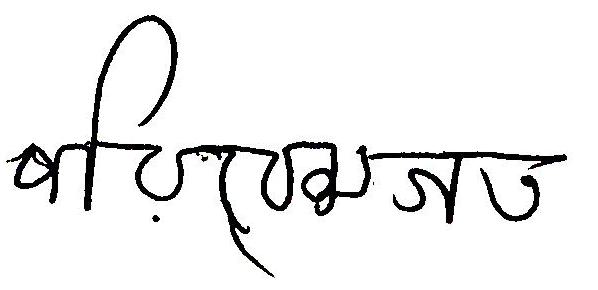 পরিবেশগত